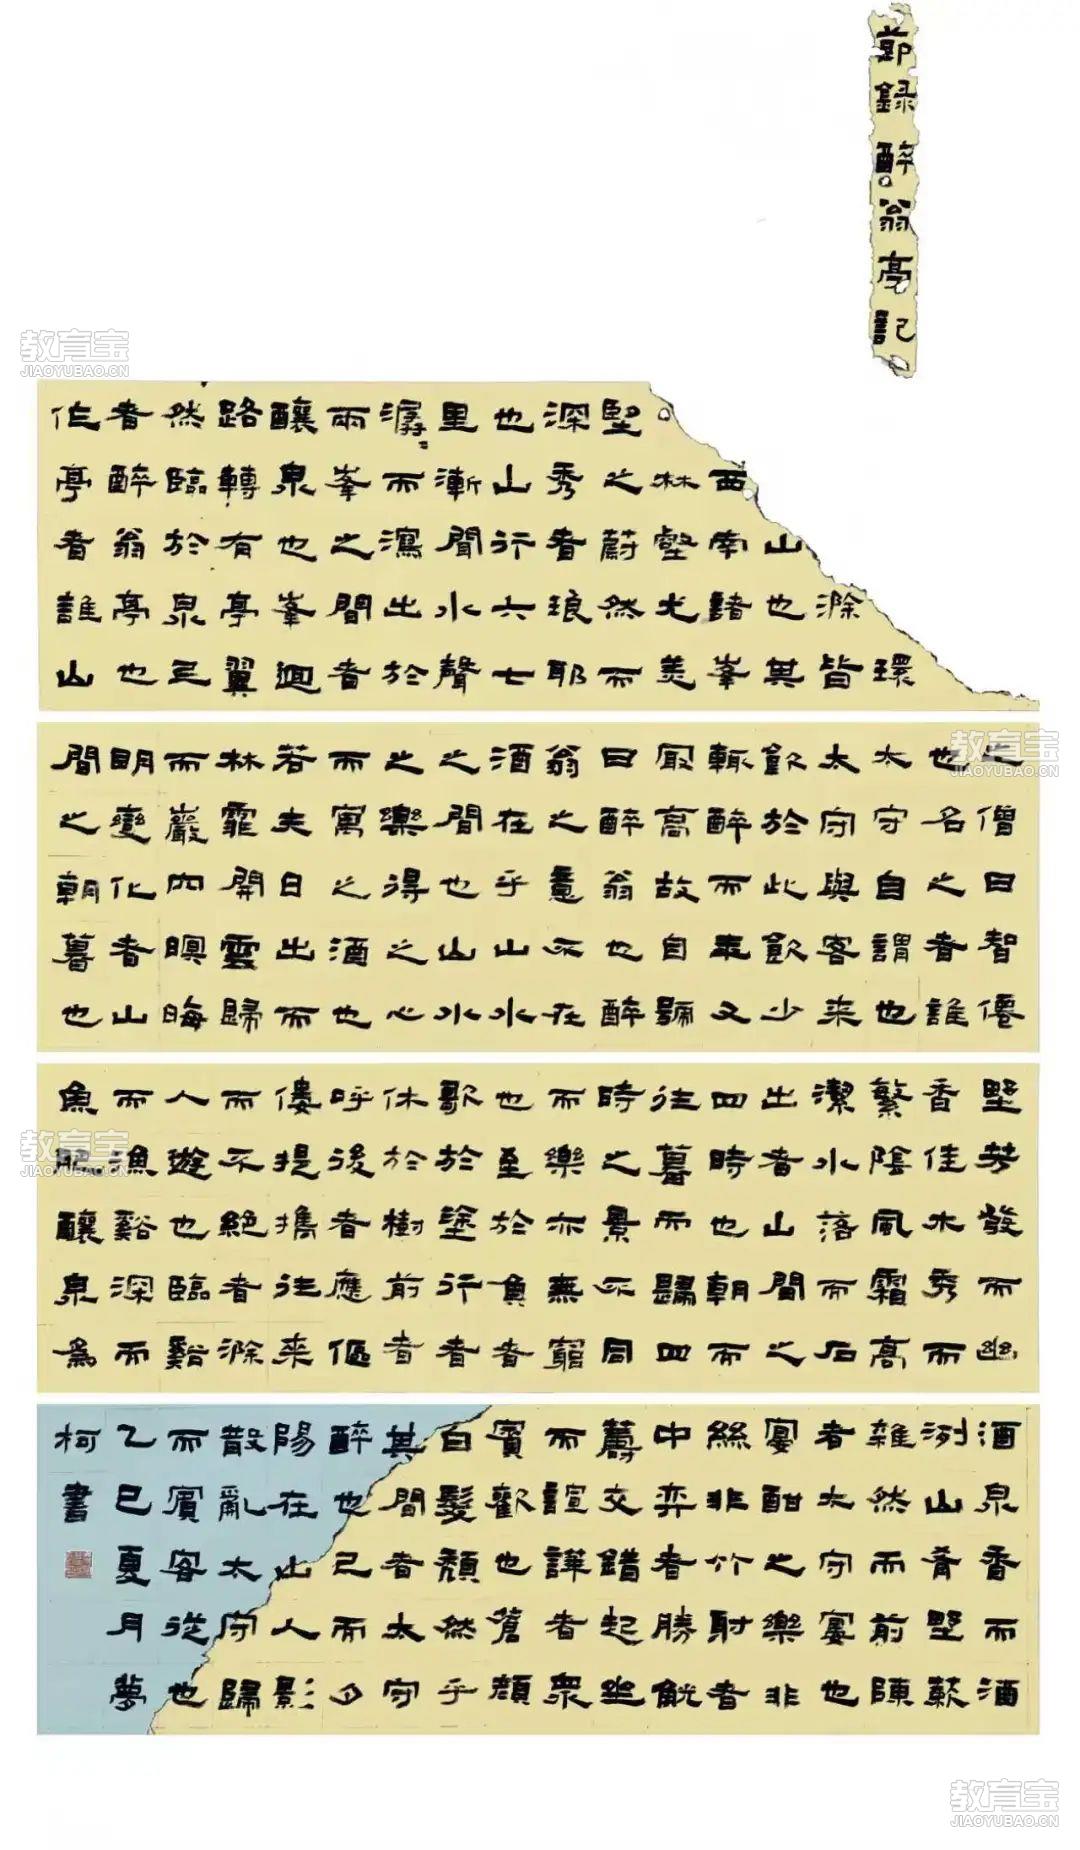 節録醉翁亭記
環
滁皆
山也其
西南諸峯
林壑尤美
望之蔚然而
深秀者琅耶
也山行六七
里漸聞水聲
潺〻而瀉出於
兩峯之間者
釀泉也峯迴
路轉有亭翼
然臨於泉上
者醉翁亭也
作亭者誰山
之僧曰智僊
也名之者誰
太守自謂也
太守與客来
飲於此飲少
輒醉而年又
冣高故自號
曰醉翁也醉
翁之意不在
酒在乎山水
之間也山水
之樂得之心
而寓之酒也
若夫日出而
林霏開雲歸
而巖穴暝晦
明變化者山
間之朝暮也
野芳發而幽
香佳木秀而
繁陰風霜高
潔水落而石
出者山間之
四時也朝而
往暮而歸四
時之景不同
而樂亦無窮
也至於負者
歌於塗行者
休於樹前者
呼後者應傴
僂提攜往来
而不絕者滁
人遊也臨谿
而漁谿深而
魚肥釀泉為
酒泉香而酒
洌山肴野蔌
雜然而前陳
者太守宴也
宴酣之樂非
絲非竹射者
中弈者勝觥
籌交錯起坐
而諠譁者衆
賓歡也蒼顏
白髮頹然乎
其間者太守
醉也已而夕
陽在山人影
散亂太守歸
而賓客從也
乙巳夏月夢
柯書
教育宝
JIAOYUBAO.CN
教育宝
JIAOYUBAO.CN
教育宝
JIAOYUBAO.CN
教育宝
JIAOYUBAO.CN